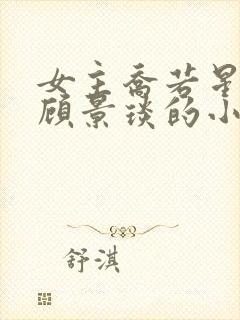 女主乔若星
顾景琰的小
舒淇